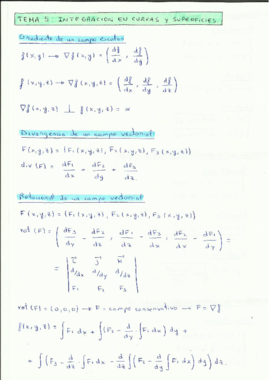 TEMA 5: INTEGRACIÓN EN CURVAS Y SUPERFICIES.
Gradiente de un campo escalar
f(x,y) → ∇f(x,y) = (df/dx, df/dy)
f(x,y,z) → ∇f(x,y,z) = (df/dx, df/dy, df/dz)
∇f(x,y,z) ⊥ f(x,y,z) = α
Divergencia de un campo vectorial
F(x,y,z) = (F1(x,y,z), F2(x,y,z), F3(x,y,z))
div(F) = dF1/dx + dF2/dy + dF3/dz
Rotacional de un campo vectorial
F(x,y,z) = (F1(x,y,z), F2(x,y,z), F3(x,y,z))
rot(F) = (dF3/dy - dF2/dz, dF1/dz - dF3/dx, dF2/dx - dF1/dy) =
= | i j k |
| d/dx d/dy d/dz |
| F1 F2 F3 |
rot(F) = (0,0,0) → F = campo conservativo → F = ∇f
f(x,y,z) = ∫F1 dx + ∫(F2 - d/dy ∫F1 dx) dy +
+ ∫(F3 - d/dz ∫F1 dx - d/dz ∫(F2 - d/dy ∫F1 dx) dy) dz.